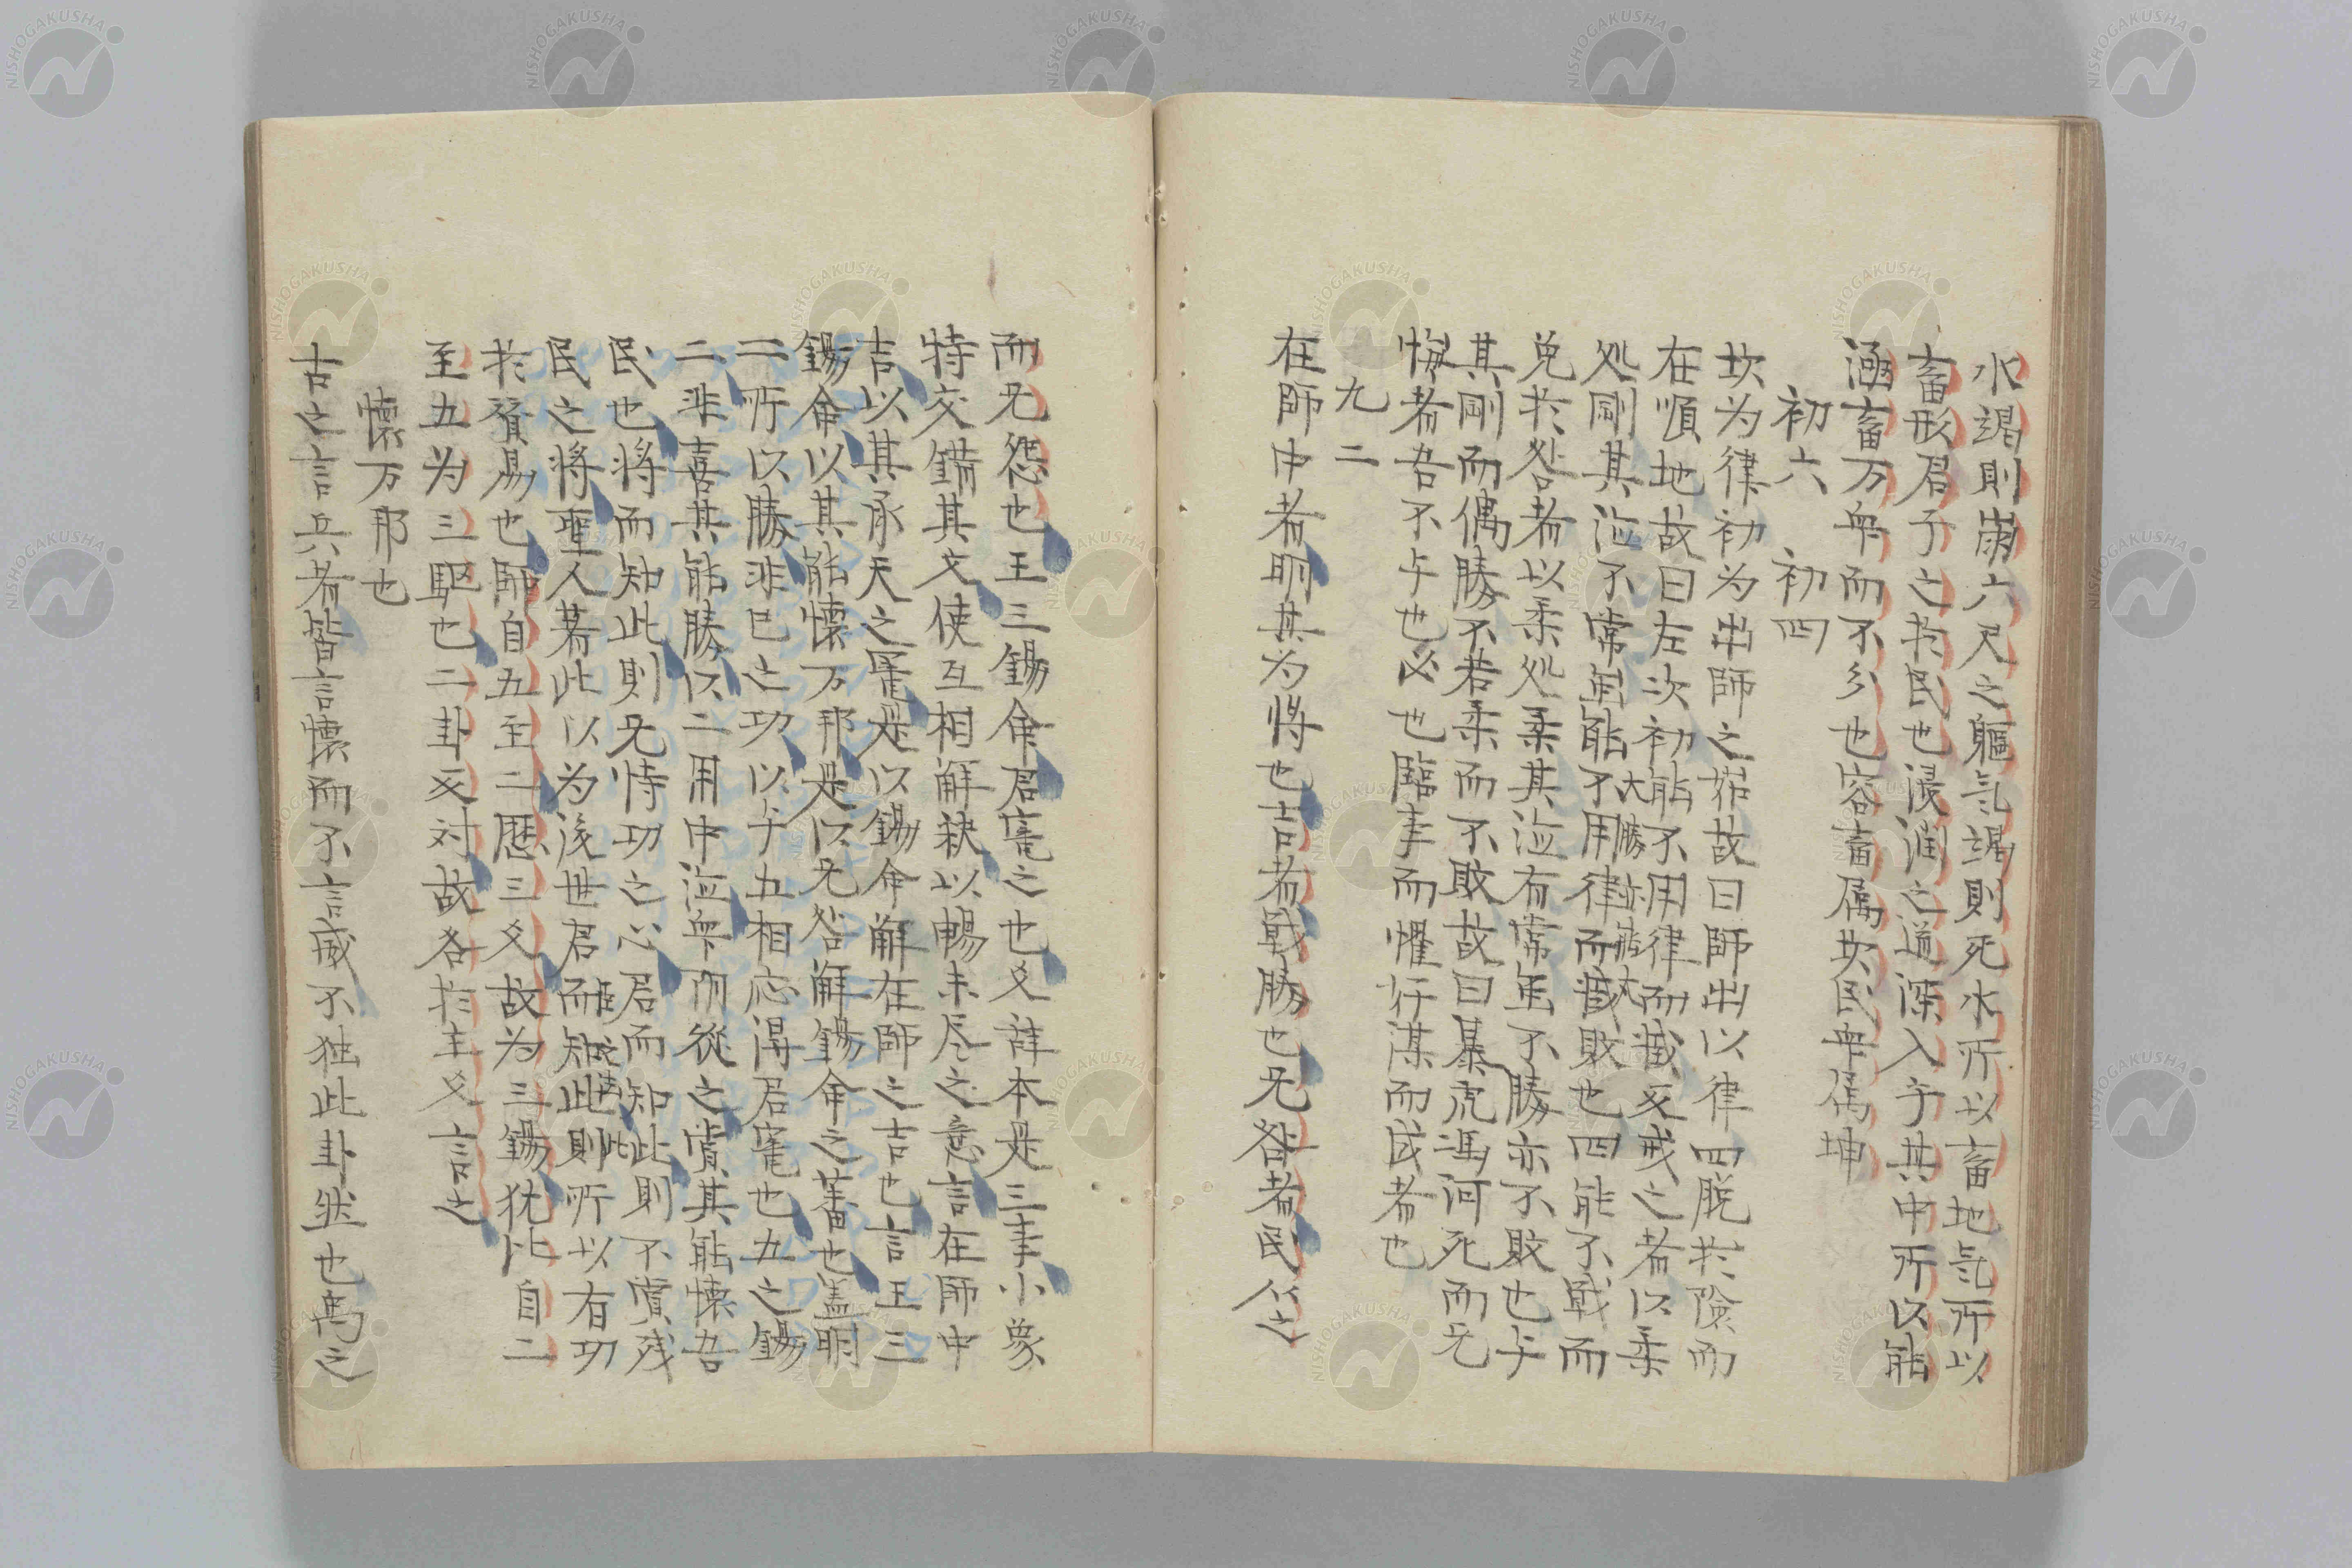 水竭則崩六尺之軀気竭則死水所以畜地気所以
畜形君子之於民也浸潤之道深入于其中所以能
涵畜万衆而不乡也容畜属坎民衆属坤
初六　初四
坎为律初为出師之始故曰師出以律四脱於險而
在順地故曰左次初能不用律而臧反戒之者以柔
処剛其涖不常虽能不用律而臧敗也四能不戰而
大勝
免於咎者以柔処柔其涖有常虽不勝亦不敗也与
其剛而偶勝不若柔而不敗故曰暴虎馮河死而无
悔者吾不与也必也臨事而懼好謀而成者也
九二
在師中者明其为将也吉者戰勝也无咎者民从之
而无怨也王三錫命君寵之也爻辞本是三事小象
特交錯其文使互相解釈以暢未尽之意言在師中
吉以其承天之寵是以錫命解在師之吉也言王三
錫命以其能懐万邦是以无咎解錫命之蕃也盖明
二所以勝非己之功以与五相応得君寵也五之錫
二非喜其能勝以二用中涖衆而從之賞其能懐吾
民也将而知此則无恃功之心君而知此則不賞残
民之将聖人著此以为後世君而知此則所以有功
於資易也師自五至二歴三爻故为三錫犹比自二
至五为三駆也二卦反対故各於主爻言之
懐万邦也
古之言兵者皆言懐而不言威不独此卦然也禹之